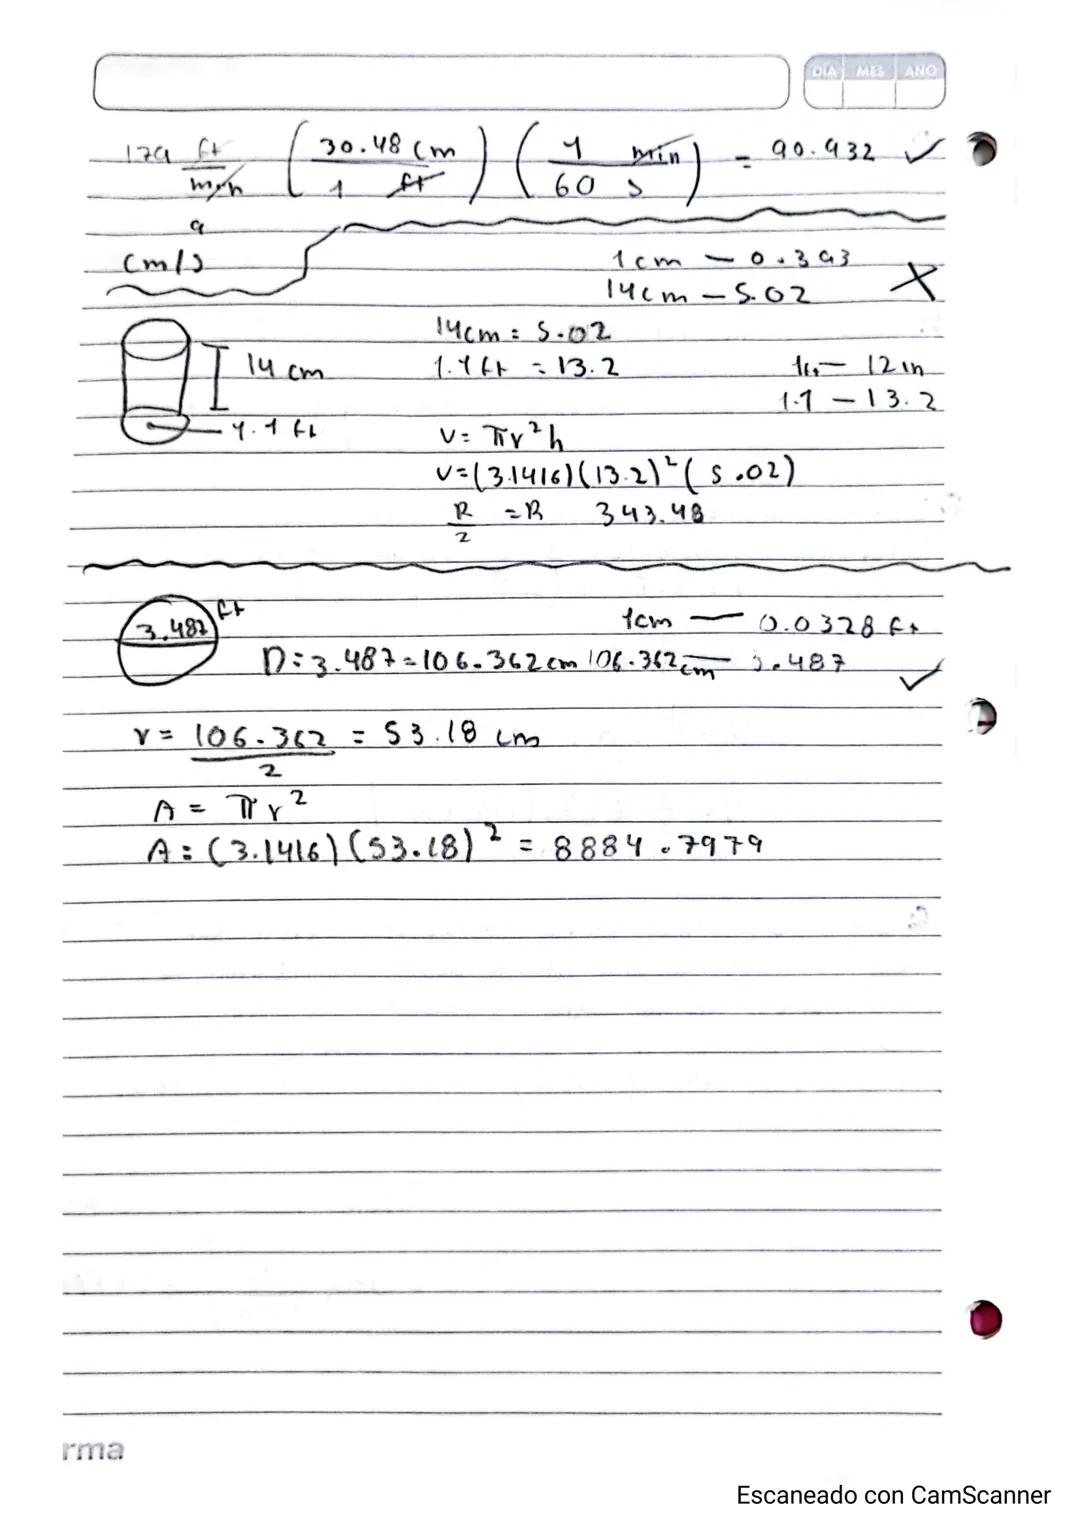 DÍA MES AÑO
179 ft/min (30.48 cm / 1 ft) (1 min / 60 s) = 90.932 ✓
a
cm/s
1cm — 0.393
14cm — 5.02 X
14cm = 5.02
14 cm 1.1 ft = 13.2 1ft — 12 in
1.1 — 13.2
1.1 ft V = πr²h
V = (3.1416)(13.2)²(5.02)
R/2 = R 343.48
3.487 ft 1cm — 0.0328 ft
D = 3.487 = 106.362 cm 106.362 cm — 3.487 ✓
r = 106.362 / 2 = 53.18 cm
A = πr²
A = (3.1416)(53.18)² = 8884.7979
rma
Escaneado con CamScanner